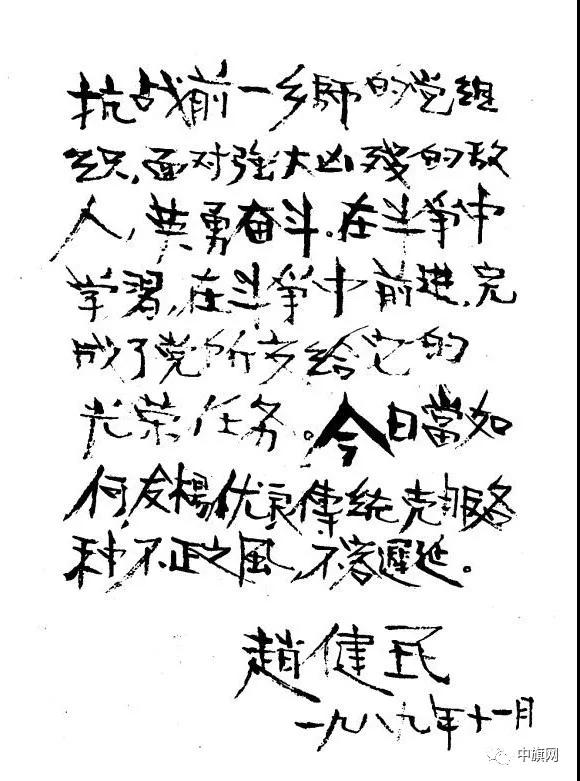 抗战前一乡師的党组
织,面对强大凶残的敌
人,英勇奋斗.在斗争中
学習,在斗争中前进,完
成了党所交给它的
光荣任务。今日當如
何发揚优良傳统克服各
种不正之風,不容遲延。
趙健民
一九八九年十一月
中旗网